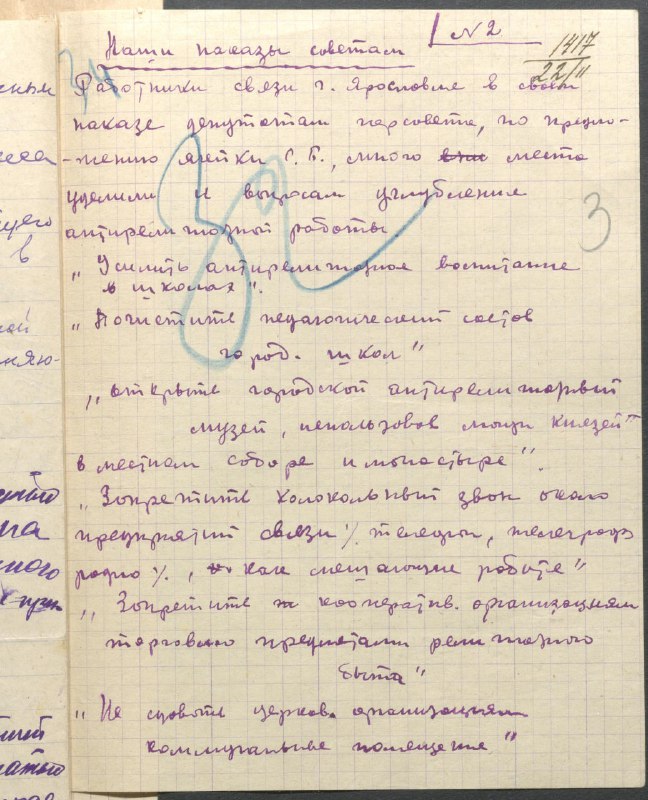 № 2
Наши наказы советам
1417
22/II
Работники связи г. Ярославля в своем
наказе депутатам горсовета, по предло-
-жению ячейки С.Б., много места
уделили и вопросам углубления
антирелигиозной работы
„Усилить антирелигиозное воспитание
в школах".
„Почистить педагогический состав
город. школ"
„открыть городской антирелигиозный
музей, использовав мощи князей"
в местном соборе и монастыре".
„Запретить колокольный звон около
предприятий связи /. телефон, телеграф
радио /., как мешающие работе"
„Запретить кооператив. организациям
торговлю предметами религиозного
быта"
„Не сдавать церков. организациям
коммунальные помещения"
3